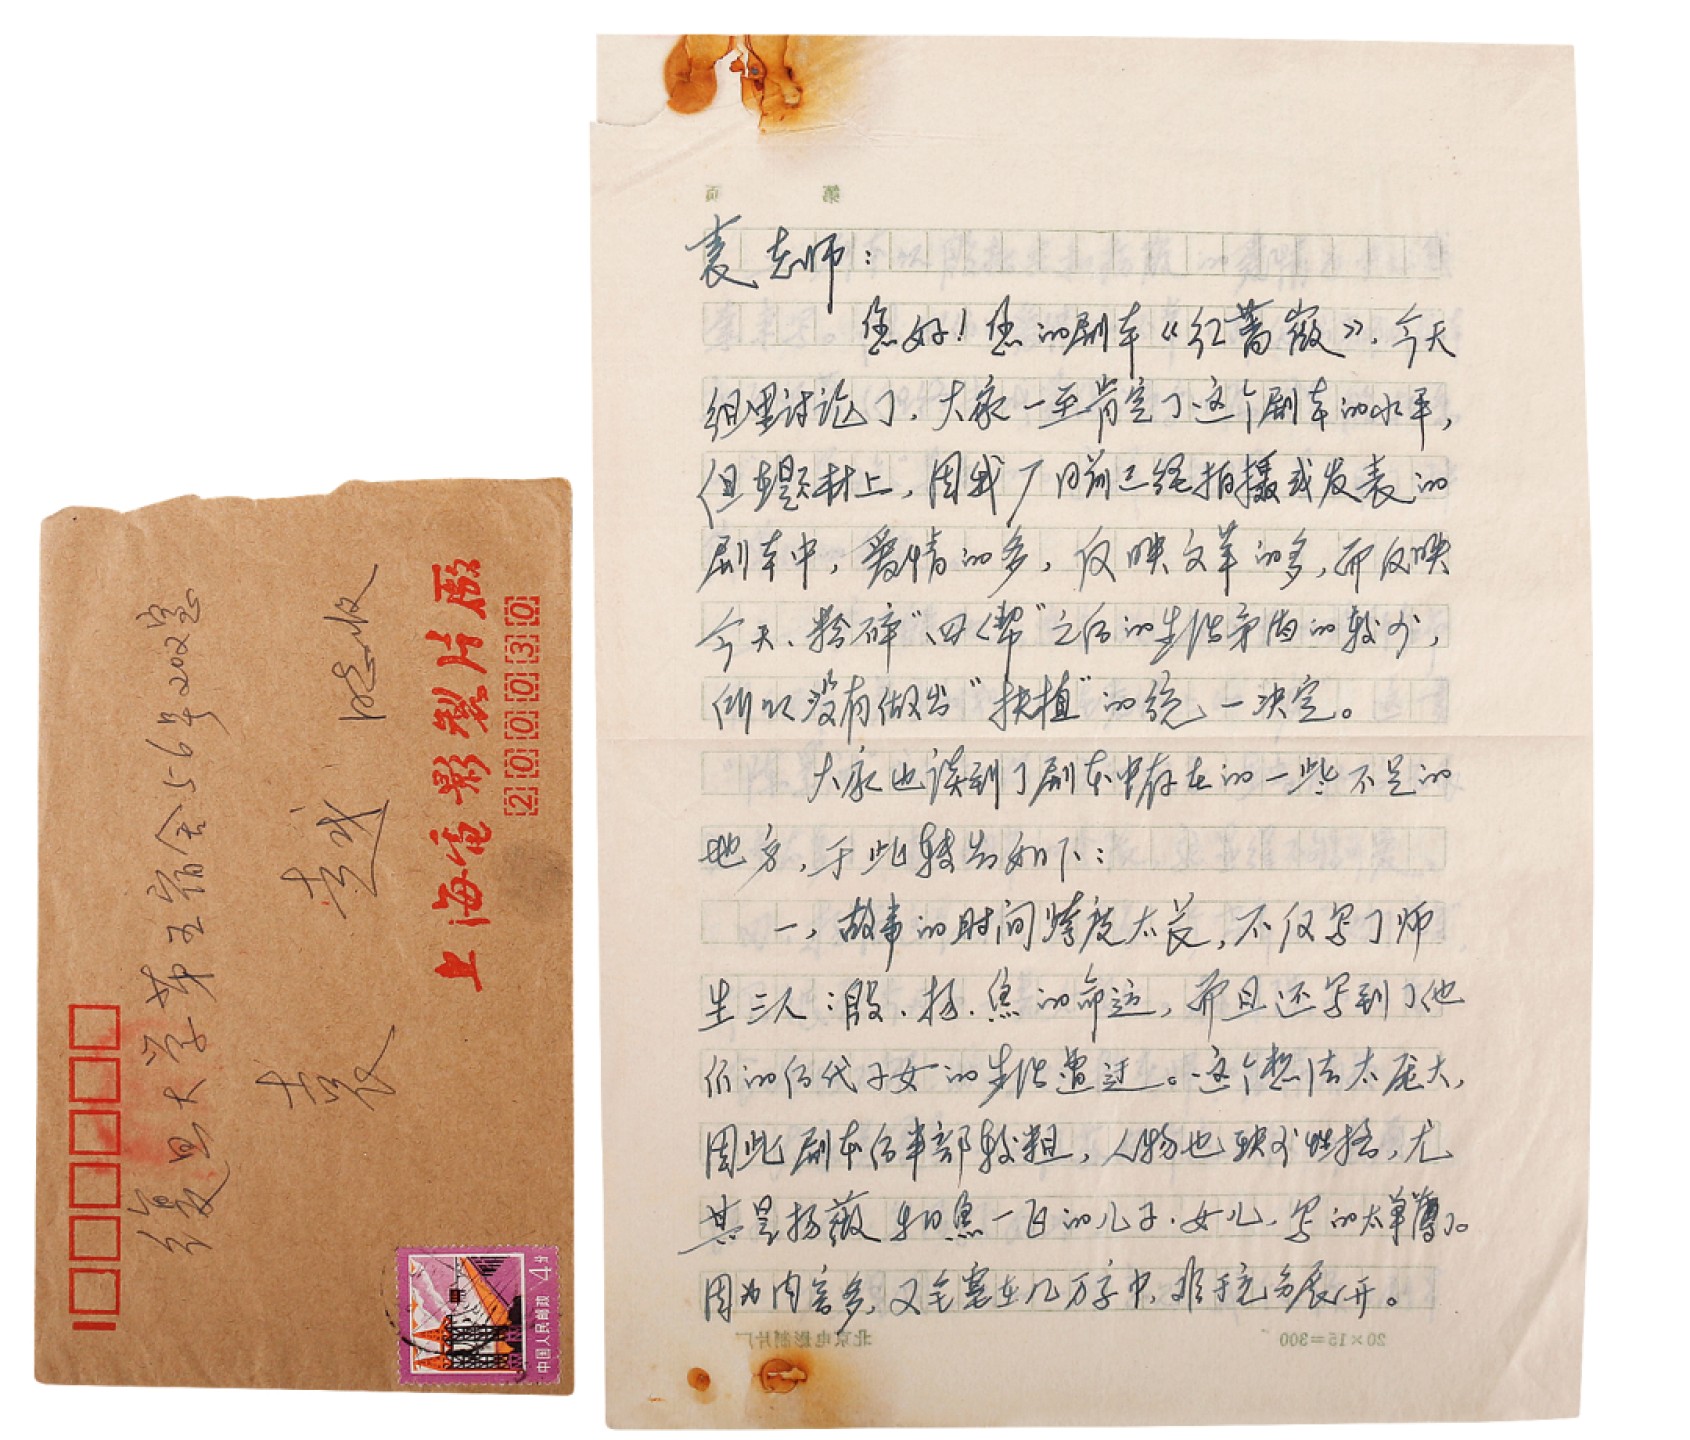 复旦大学第五宿舍56号202室
袁 越 成 收
上海电影製片厰
200030
中国人民邮政
4分
第 页
袁老师：
您好！您的剧本《红蔷薇》，今天
组里讨论了，大家一至肯定了这个剧本的水平，
但在题材上，因我厂目前已经拍摄或发表的
剧本中，爱情的多，反映文革的多，而反映
今天、粉碎“四人帮”之后的生活矛盾的较少，
所以没有做出“扶植”的统一决定。
大家也谈到了剧本中存在的一些不足的
地方，于此转告如下：
一，故事的时间跨度太长，不仅写了师
生三人：殷、杨、焦的命运，而且还写到了他
们的后代子女的生活遭迂。这个想法太庞大，
因此剧本后半部较粗，人物也缺少性格，尤
其是杨薇和焦一飞的儿子、女儿，写的太单薄了。
因为内容多，又全塞在几万字中，难于充分展开。
北京电影制片厂
20×15=300